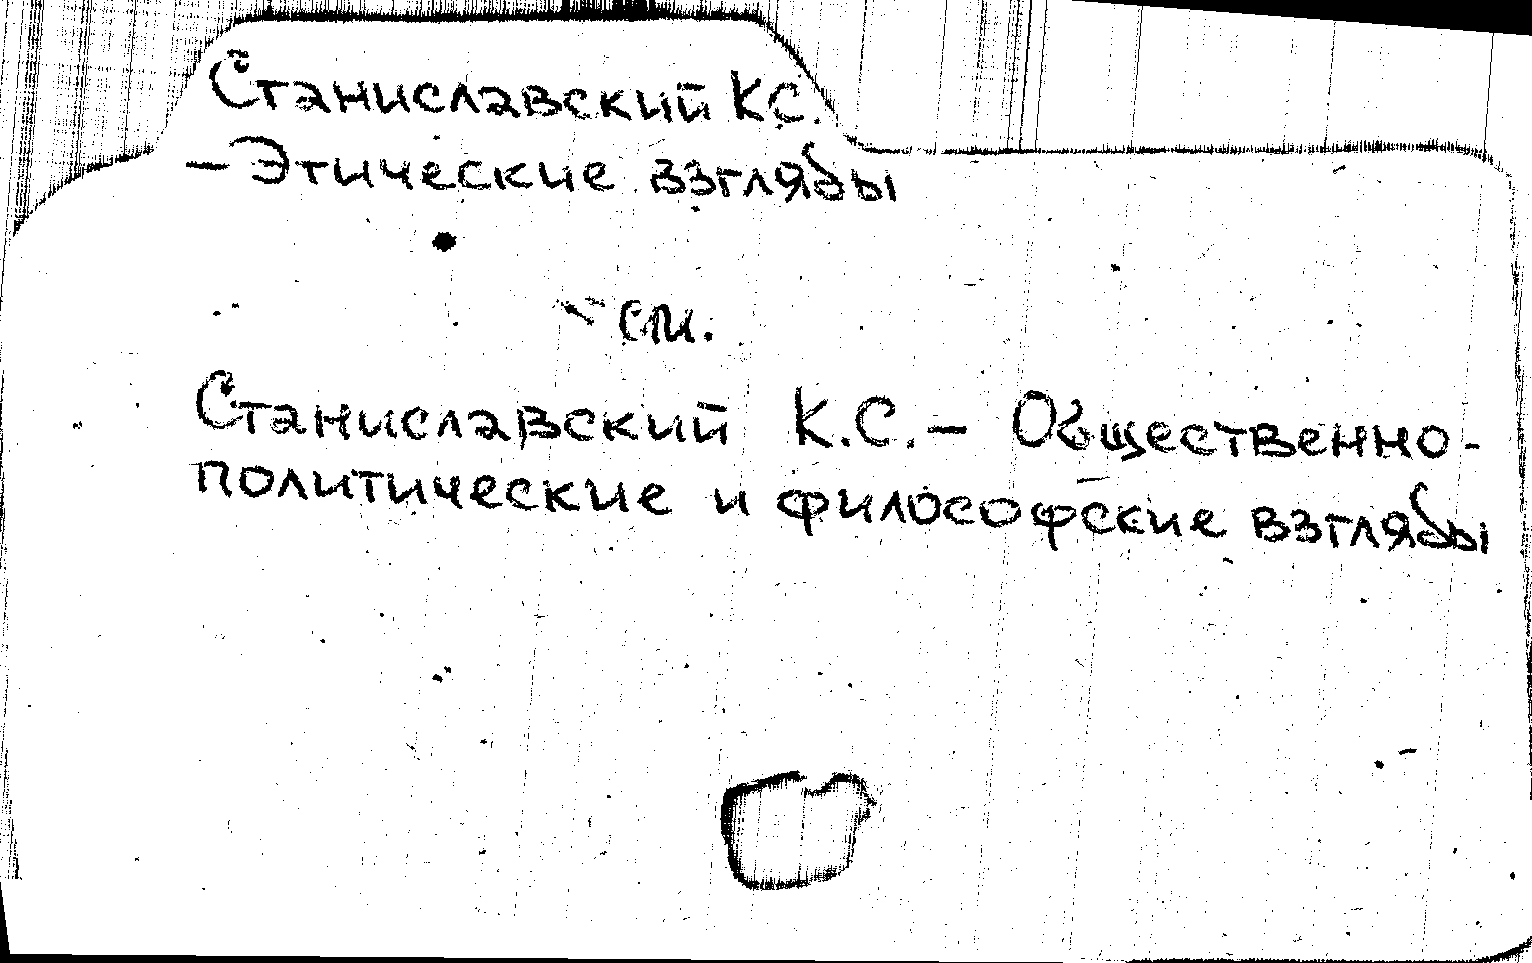 Станиславский К.С.
– Этические взгляды
см.
Станиславский К.С. – Общественно-
политические и философские взгляды